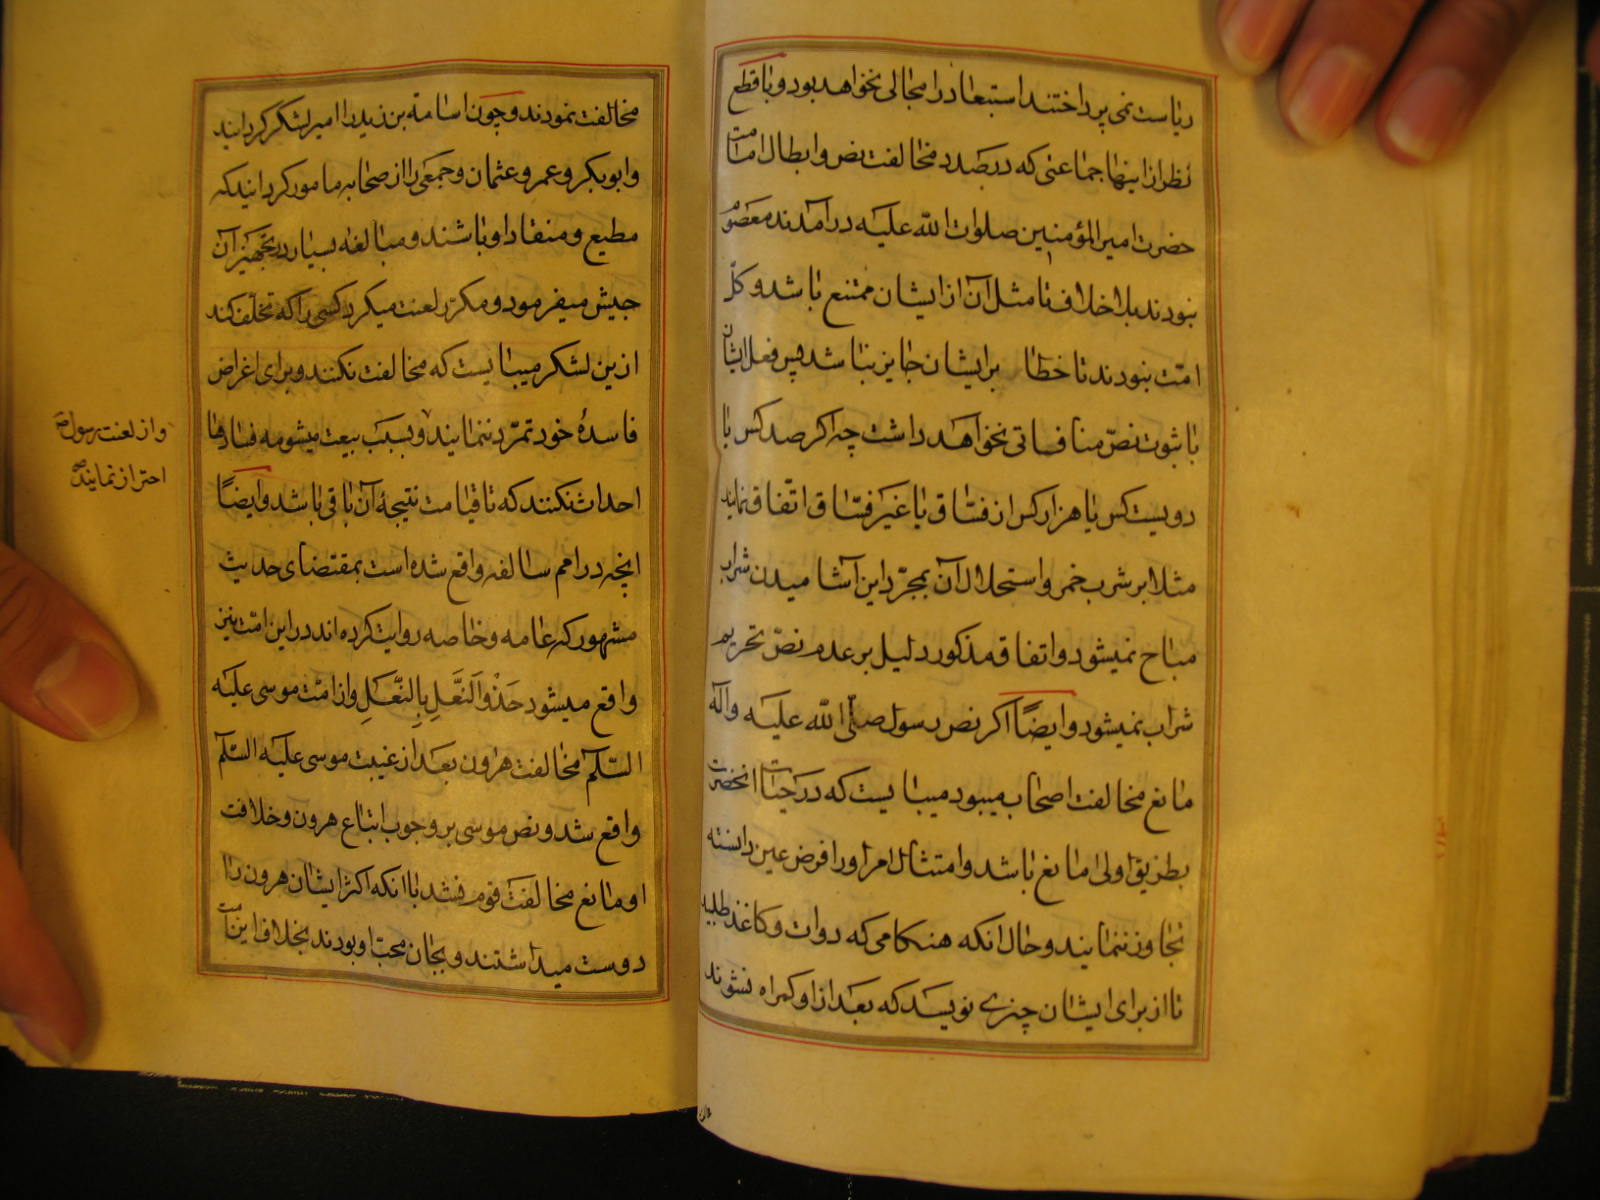 ریاست نمی پرداختند استبعاد را مجالی نخواهد بود و با قطع
نظر از اینها جماعتی که در صدد مخالفت نص و ابطال امامت
حضرت امیر المؤمنین صلوات الله علیه در آمدند معصوم
نبودند بلا خلاف تا مثل آن از ایشان ممتنع باشد و کلّ
امّت نبودند تا خطا بر ایشان جایز نباشد پس فعل ایشان
با ثبوت نصّ منافاتی نخواهد داشت چه اکر صد کس یا
دویست کس یا هزار کس از فسّاق یا غیر فسّاق اتّفاق نمایند
مثلا بر شرب خمر و استحلال آن بمجرّد این آشامیدن شراب
مباح نمیشود و اتفاق مذکور دلیل بر عدم نصّ تحریم
شراب نمیشود و ایضاً اکر نص رسول صلّی الله علیه و آله
مانع مخالفت اصحاب میبود میبایست که در حیات انحضرت
بطریق اولی مانع باشد و امتثال امر او را فرض عین دانسته
تجاوز ننمایند و حال انکه هنکامی که دوات و کاغذ طلبید
تا از برای ایشان چیزی نویسد که بعد از او کمراه نشوند
مخالفت نمودند و چون اسامة بن زید را امیر لشکر کردانید
و ابو بکر و عمر و عثمان و جمعی را از صحابه مامور کردانید که
مطیع و منقاد او باشند و مبالغه بسیار در تجهیز آن
جیش میفرمود و مکرّر لعنت میکرد کسی را که تخلّف کند
ازین لشکر میبایست که مخالفت نکنند و برای اغراض
فاسدهٔ خود تمرّد ننمایند و بسبب بیعت میشومه فسادها
احداث نکنند که تا قیامت نتیجهٔ آن باقی باشد و ایضاً
انچه در امم سالفه واقع شده است بمقتضای حدیث
مشهور که عامه و خاصه روایت کرده اند در این امّت نیز
واقع میشود حَذْوَ النَّعْلِ بِالنَّعْلِ و از امّت موسی علیه
السّلم مخالفت هرون بعد از غیبت موسی علیه السّلم
واقع شد و نص موسی بر وجوب اتباع هرون و خلافت
او مانع مخالفت قوم نشد با انکه اکثر ایشان هرون را
دوست میداشتند و بجان محبّ او بودند بخلاف این امت
و از لعنت رسول ص
احتراز نمایند